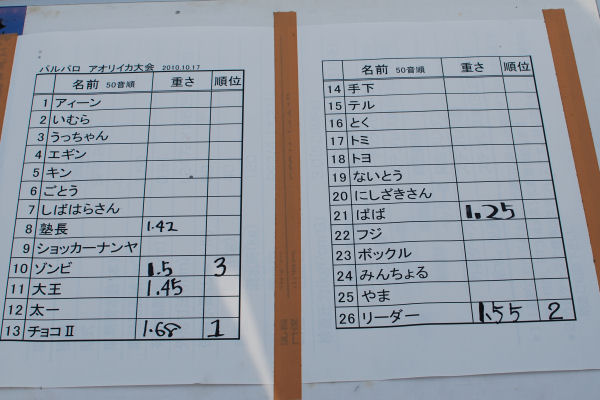 バルバロ アオリイカ大会 2010.10.17
名前 50音順 重さ 順位
1 アィーン
2 いむら
3 うっちゃん
4 エギン
5 キン
6 ごとう
7 しばはらさん
8 塾長 1.42
9 ショッカーナンヤ
10 ゾンビ 1.5 3
11 大王 1.45
12 太一
13 チョコⅡ 1.68 1
名前 50音順 重さ 順位
14 手下
15 テル
16 とく
17 トミ
18 トヨ
19 ないとう
20 にしざきさん
21 ばば 1.25
22 フジ
23 ボックル
24 みんちょる
25 やま
26 リーダー 1.55 2